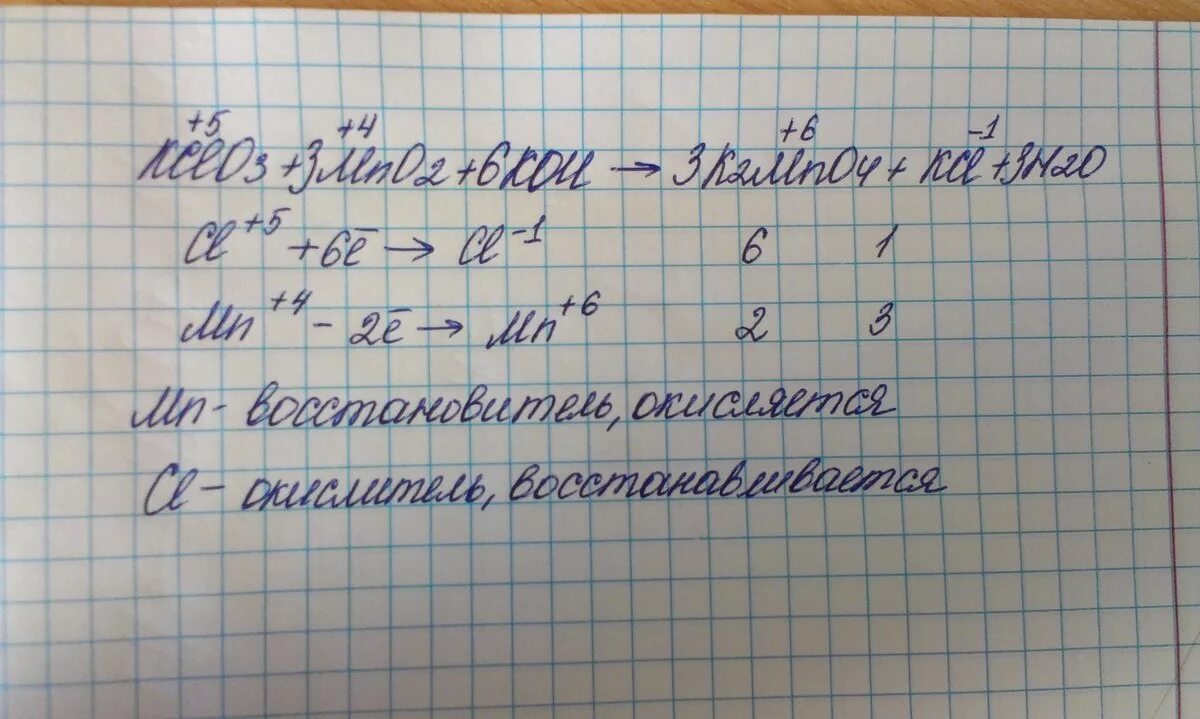 KCl⁺⁵O3 + 3Mn⁺⁴O2 + 6KOH → 3K2Mn⁺⁶O4 + KCl⁻¹ + 3H2O
Cl⁺⁵ + 6ē → Cl⁻¹ 6 1
Mn⁺⁴ - 2ē → Mn⁺⁶ 2 3
Mn - восстановитель, окисляется
Cl - окислитель, восстанавливается